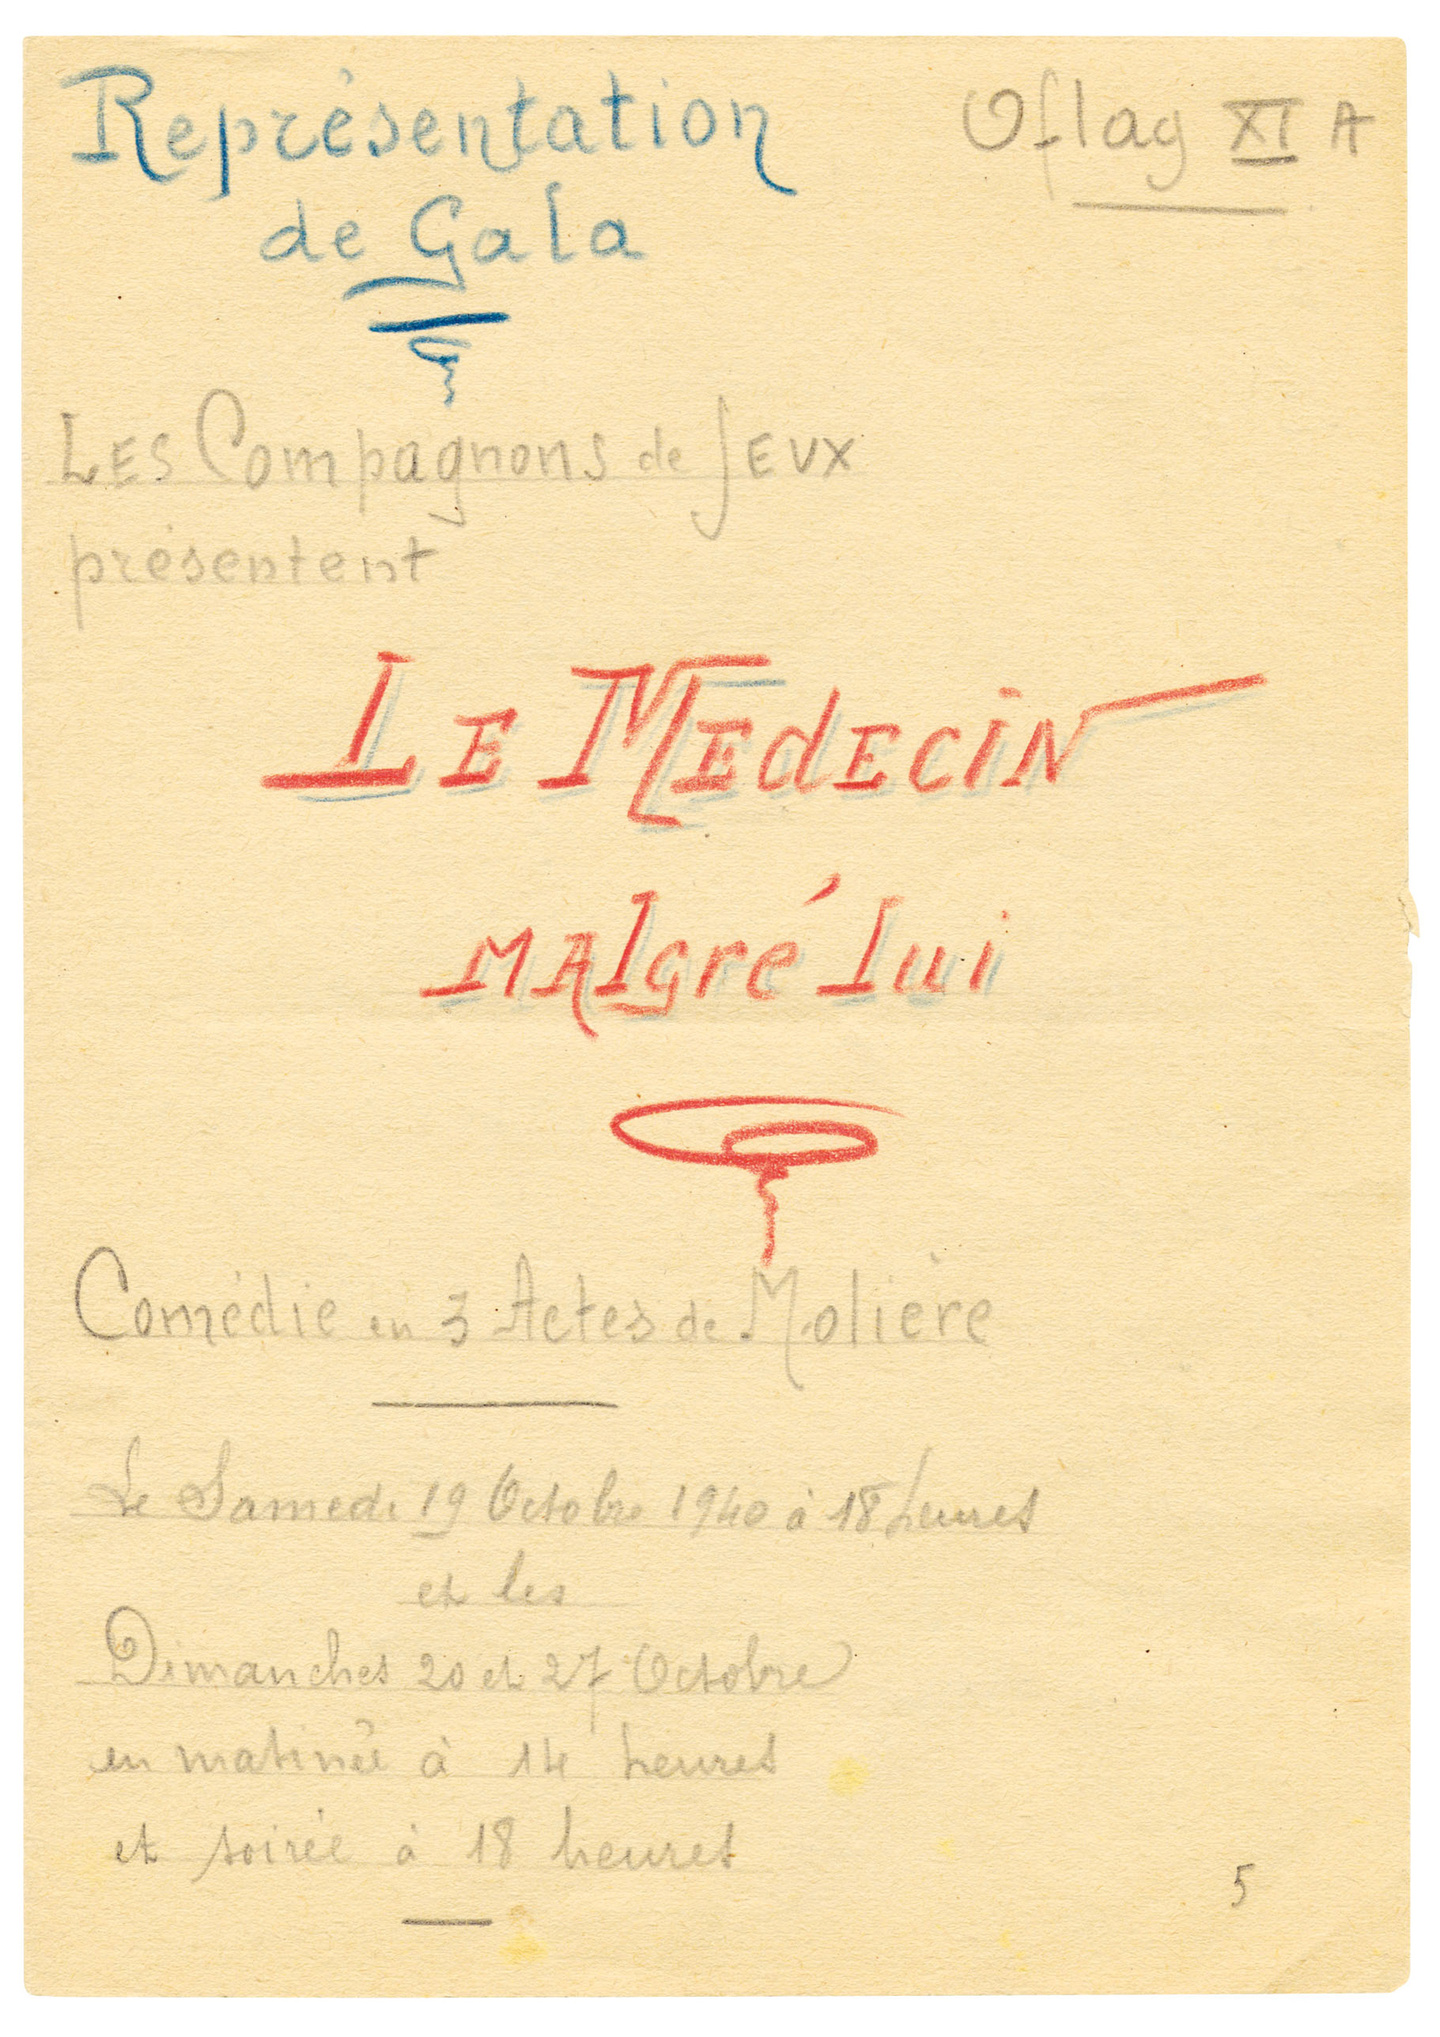 Représentation
de Gala
Oflag XI A
LES Compagnons de JEUX
présentent
LE MEdECiN
MAlgré lui
Comédie en 3 Actes de Molière
Le Samedi 19 Octobre 1940 à 18 heures
et les
Dimanches 20 et 27 Octobre
en matinée à 14 heures
et soirée à 18 heures
5